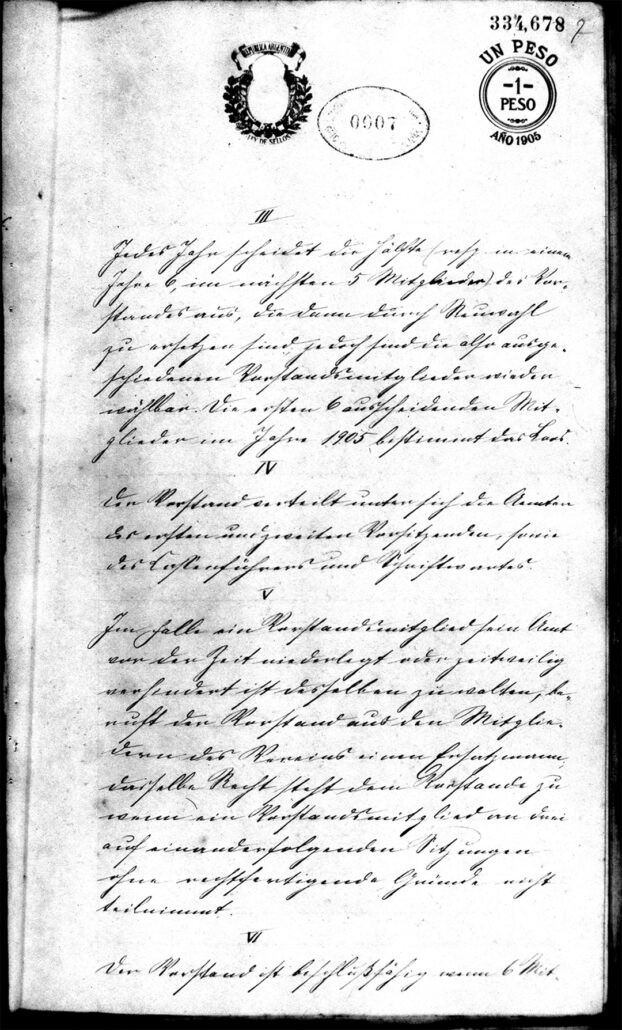 334,678
2
REPUBLICA ARGENTINA
LEY DE SELLOS
0007
UN PESO
-1-
PESO
AÑO 1905
III
Jedes Jahr scheidet die Hälfte (resp. in einem
Jahre 6, im nächsten 5 Mitglieder) des Vor-
standes aus, die dann durch Neuwahl
zu ersetzen sind, jedoch sind die also ausge-
schiedenen Vorstandsmitglieder wieder
wählbar. Die ersten 6 ausscheidenden Mit-
glieder im Jahre 1905 bestimmt das Loos.
IV
Der Vorstand verteilt unter sich die Aemter
des ersten und zweiten Vorsitzenden, sowie
des Cassenführers und Schriftwartes.
V
Im Falle ein Vorstandsmitglied sein Amt
vor der Zeit niederlegt oder zeitweilig
verhindert ist desselben zu walten, be-
ruft der Vorstand aus den Mitglie-
dern des Vereins einen Ersatzmann,
dasselbe Recht steht dem Vorstande zu
wenn ein Vorstandsmitglied an drei
auf einanderfolgenden Sitzungen
ohne rechtfertigende Gründe nicht
teilnimmt.
VI
Der Vorstand ist beschlußfähig wenn 6 Mit-